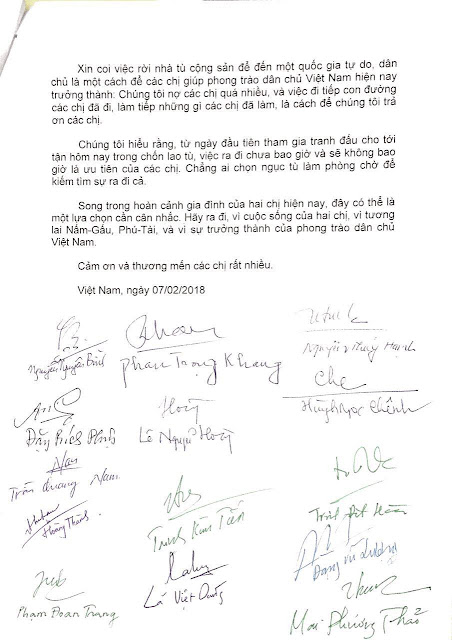 Xin coi việc rời nhà tù cộng sản để đến một quốc gia tự do, dân
chủ là một cách để các chị giúp phong trào dân chủ Việt Nam hiện nay
trưởng thành. Chúng tôi nợ các chị quá nhiều, và việc đi tiếp con đường
các chị đã đi, làm tiếp những gì các chị đã làm, là cách để chúng tôi trả
ơn các chị.
Chúng tôi hiểu rằng, từ ngày đầu tiên tham gia tranh đấu cho tới
tận hôm nay trong chốn lao tù, việc ra đi chưa bao giờ và sẽ không bao
giờ là ưu tiên của các chị. Chẳng ai chọn ngục tù làm phòng chờ để
kiếm tìm sự ra đi cả.
Song trong hoàn cảnh gia đình của hai chị hiện nay, đây có thể là
một lựa chọn cần cân nhắc. Hãy ra đi, vì cuộc sống của hai chị, vì tương
lai Nấm-Gấu, Phú-Tài, và vì sự trưởng thành của phong trào dân chủ
Việt Nam.
Cảm ơn và thương mến các chị rất nhiều.
Việt Nam, ngày 07/02/2018
Phan Trọng Khang
Nguyễn Thúy Hạnh
Huỳnh Ngọc Chênh
Đặng Bích Phượng
Trần Quang Nam
Hoàng Thành
Trịnh Kim Tiến
Phạm Đoan Trang
Lã Việt Dũng
Mai Phương Thảo